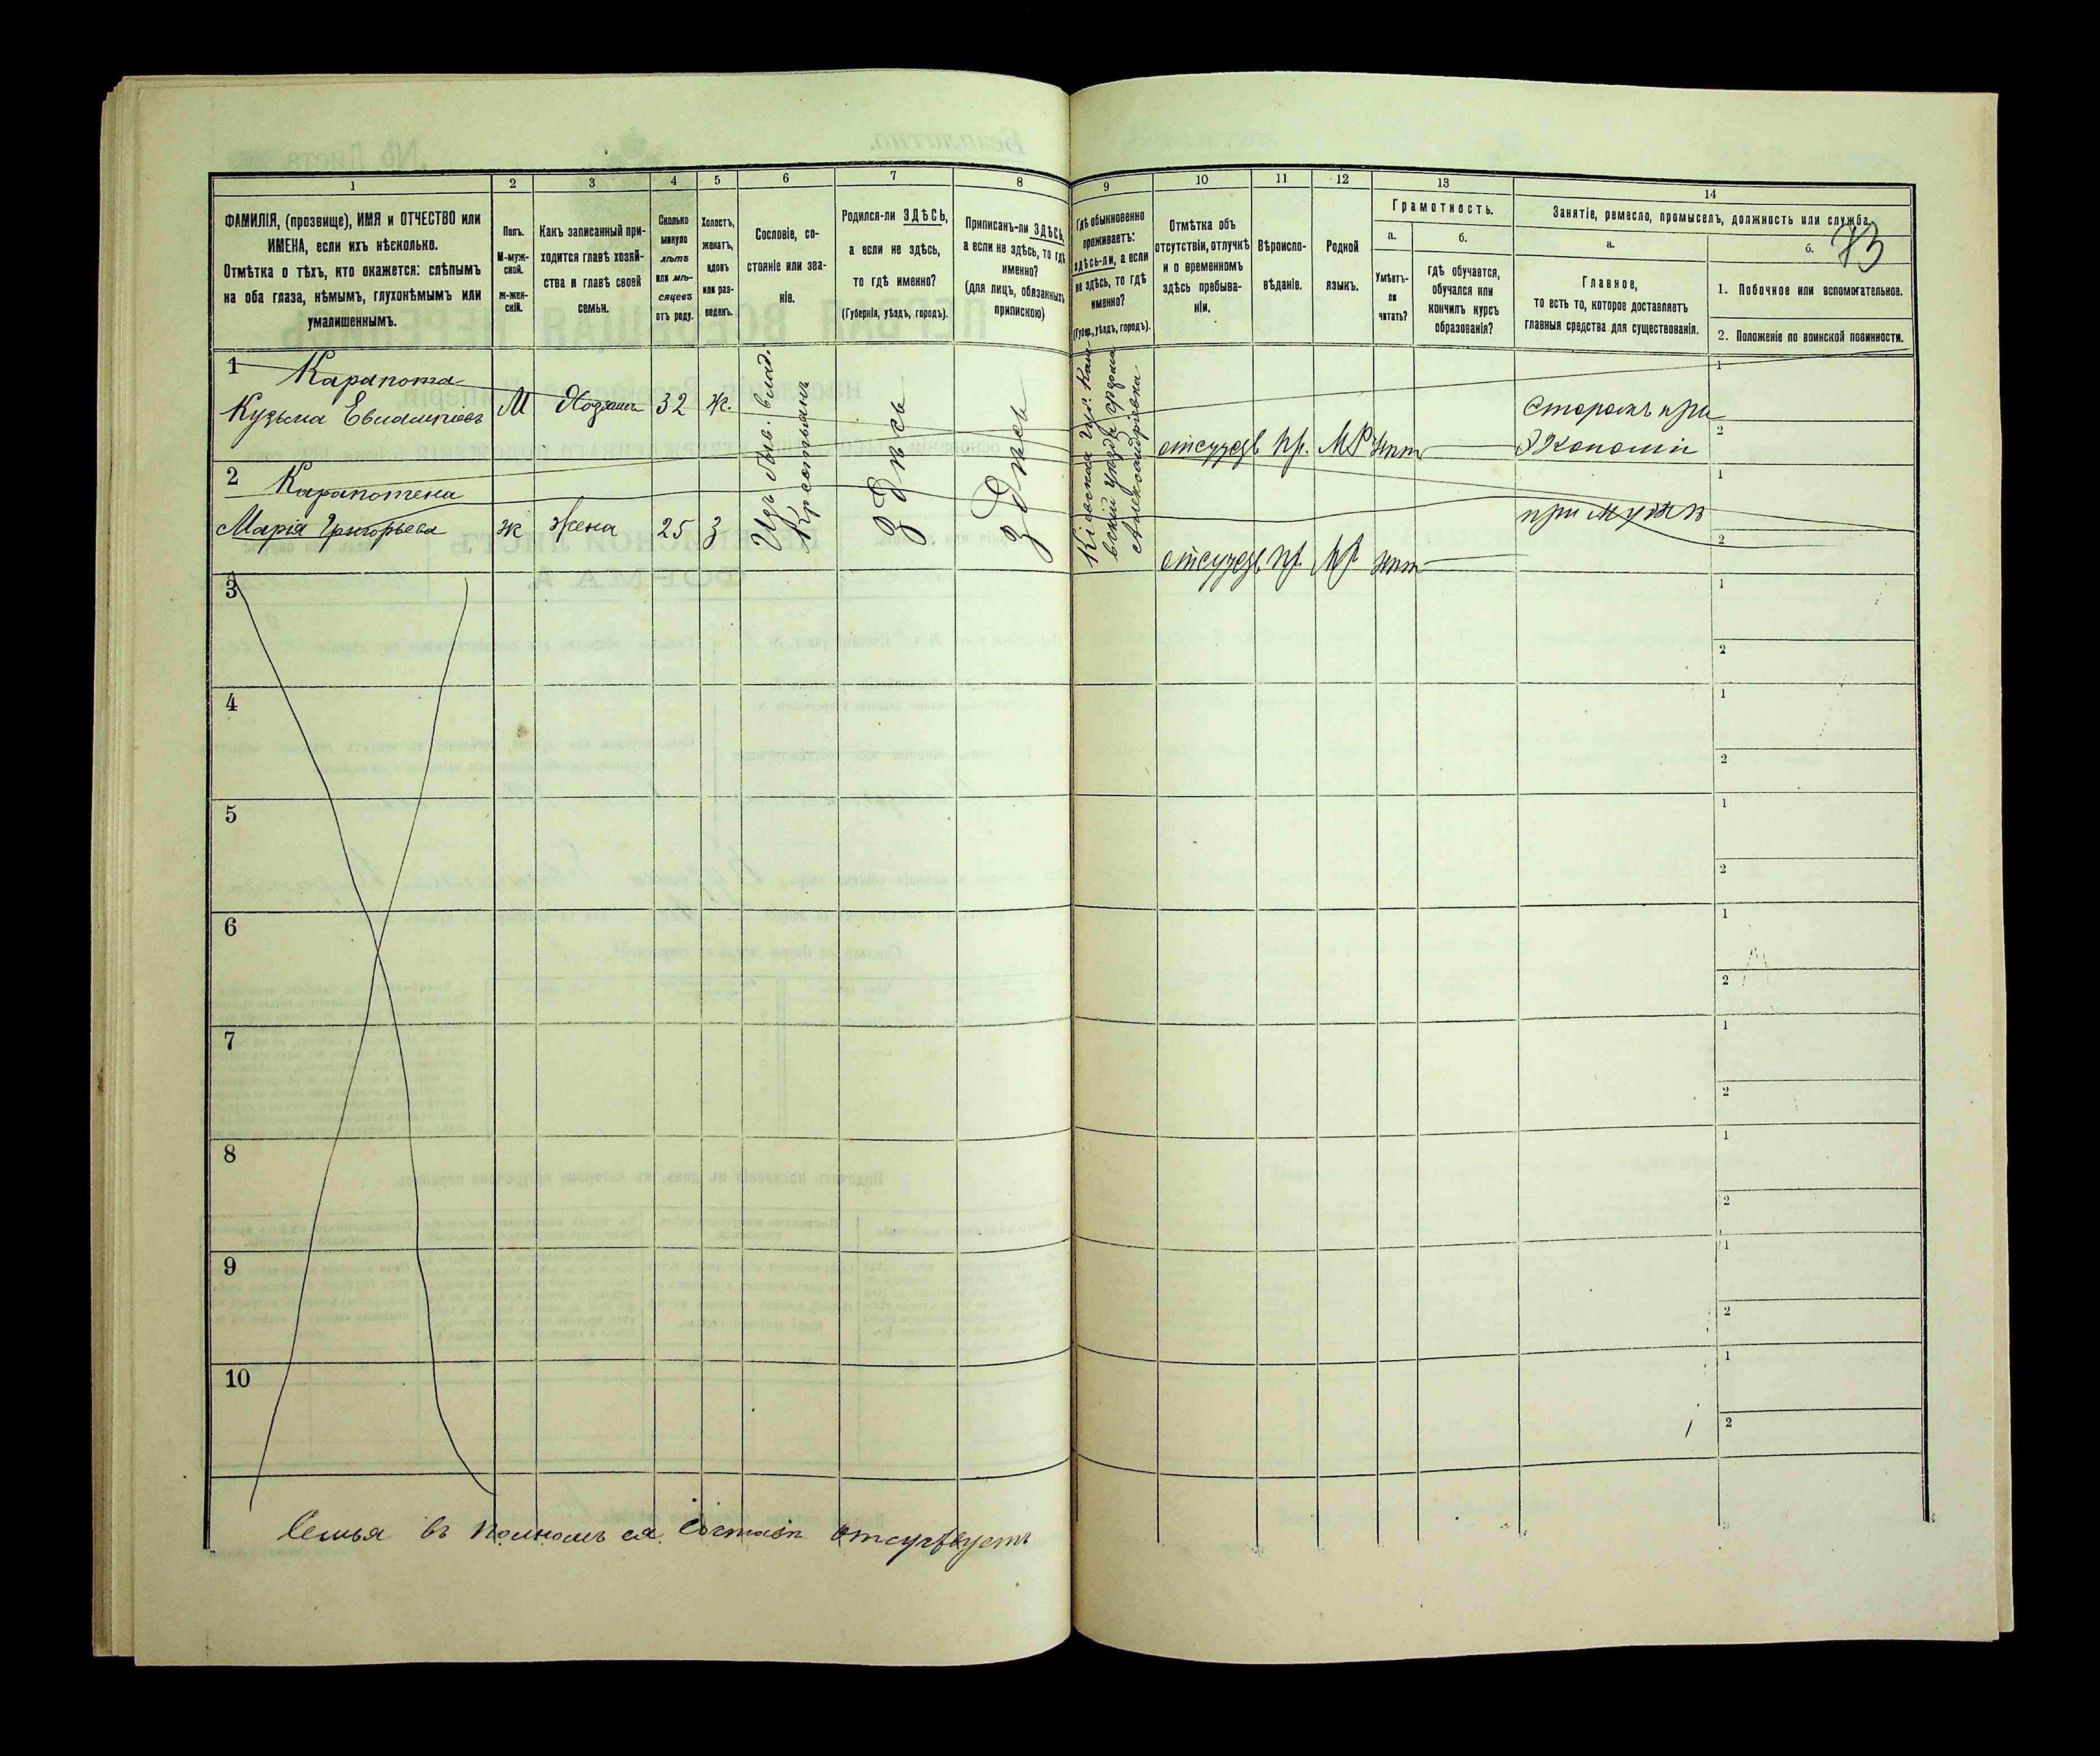 73
1 2 3 4 5 6 7 8 9 10 11 12 13 14
ФАМИЛІЯ, (прозвище), ИМЯ и ОТЧЕСТВО или
ИМЕНА, если ихъ нѣсколько.
Отмѣтка о тѣхъ, кто окажется: слѣпымъ
на оба глаза, нѣмымъ, глухонѣмымъ или
умалишеннымъ.
Полъ.
М-муж-
ской.
Ж-жен-
скій.
Какъ записанный при-
ходится главѣ хозяй-
ства и главѣ своей
семьи.
Сколько
минуло
лѣтъ
или мѣ-
сяцевъ
отъ роду.
Холостъ,
женатъ,
вдовъ
или раз-
веденъ.
Сословіе, со-
стояніе или зва-
ніе.
Родился-ли ЗДѢСЬ,
а если не здѣсь,
то гдѣ именно?
(Губернія, уѣздъ, городъ).
Приписанъ-ли ЗДѢСЬ,
а если не здѣсь, то гдѣ
именно?
(для лицъ, обязанныхъ
припискою)
Гдѣ обыкновенно
проживаетъ:
здѣсь-ли, а если
не здѣсь, то гдѣ
именно?
(Губер., уѣздъ, городъ).
Отмѣтка объ
отсутствіи, отлучкѣ
и о временномъ
здѣсь пребыва-
ніи.
Вѣроиспо-
вѣданіе.
Родной
языкъ.
Грамотность.
а.
Умѣетъ-
ли
читать?
б.
гдѣ обучается,
обучался или
кончилъ курсъ
образованія?
Занятіе, ремесло, промыселъ, должность или служба.
а.
Главное,
то есть то, которое доставляетъ
главныя средства для существованія.
б.
1. Побочное или вспомогательное.
2. Положеніе по воинской повинности.
1 Карапота
Кузьма М Хозяинъ 32 ж.
Изъ быв. влад.
Крестьянъ
Здѣсь
Здѣсь
Кіевская губ.
отсутств пр. МР нѣт
Сторожъ при
Экономіи
1
2
2 Карапотена
Марія Григорьева ж жена 25 З
отсутств пр. МР нѣт
при мужѣ
1
2
3
1
2
4
1
2
5
1
2
6
1
2
7
1
2
8
1
2
9
1
2
10
1
2
Семья въ полномъ ея составѣ отсутствуетъ